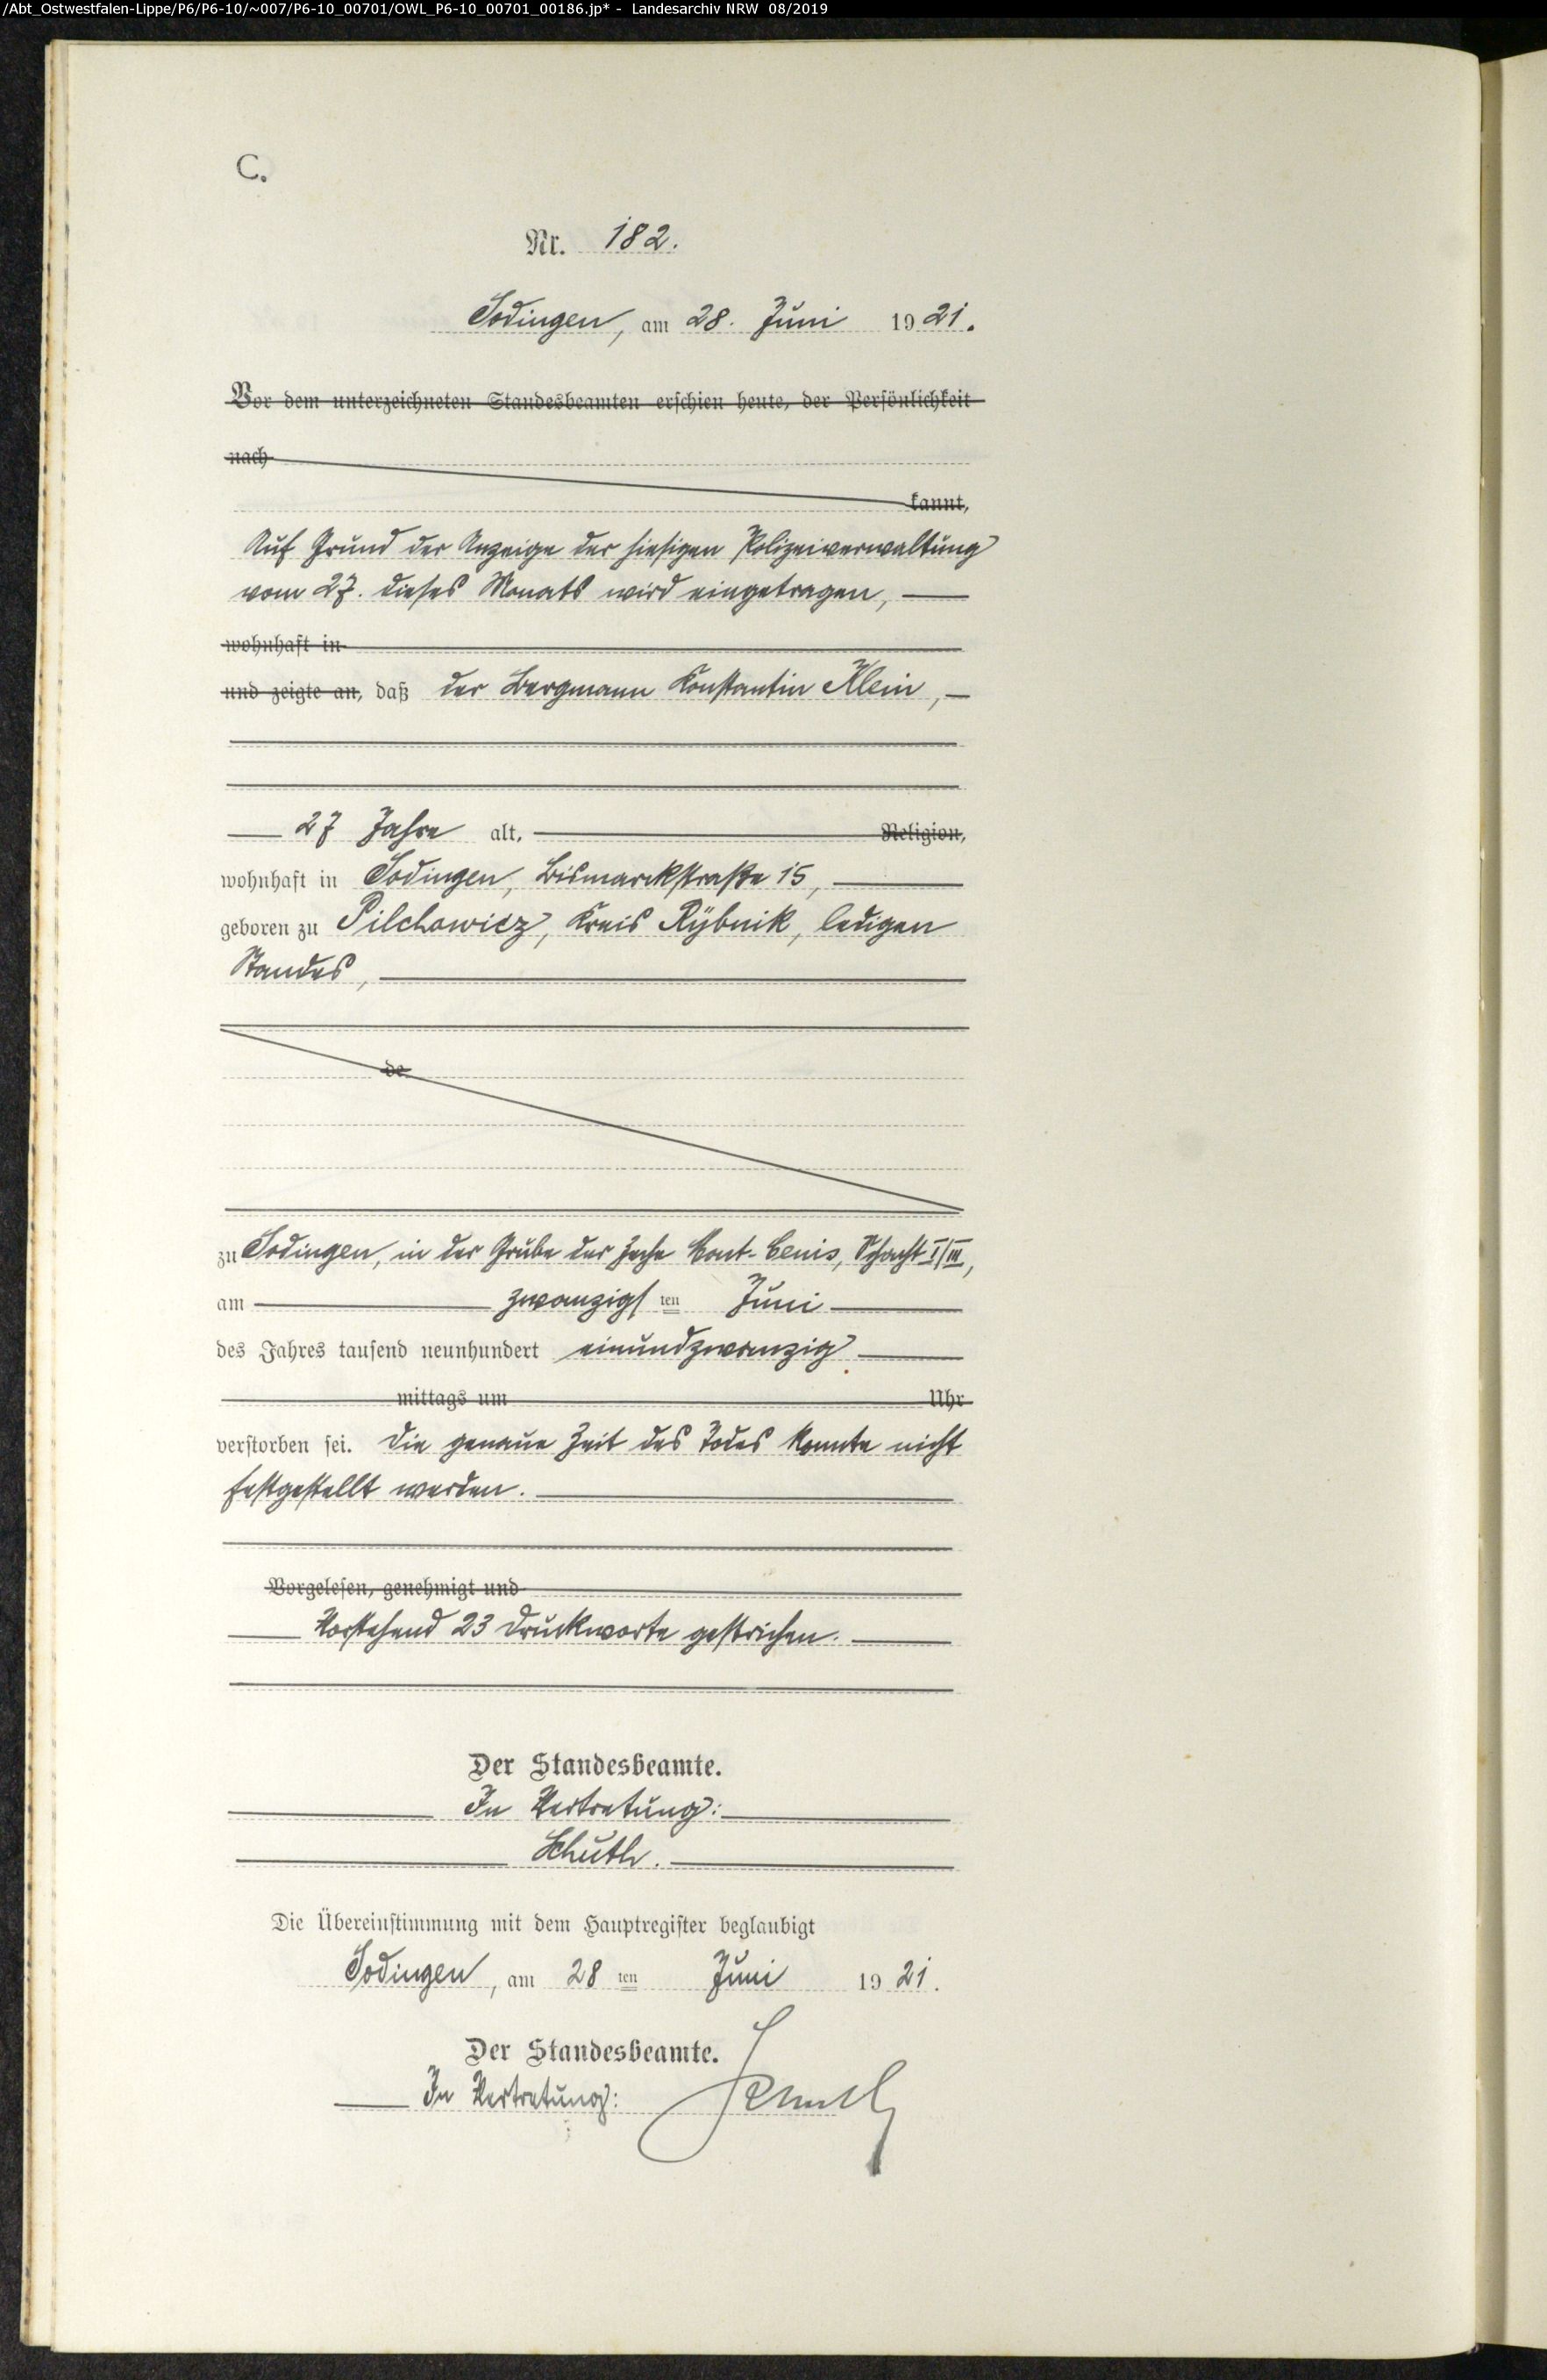 /Abt_Ostwestfalen-Lippe/P6/P6-10/~007/P6-10_00701/OWL_P6-10_00701_00186.jp* - Landesarchiv NRW 08/2019
C.
Nr. 182.
Sodingen, am 28. Juni 1921.
Vor dem unterzeichneten Standesbeamten erschien heute, der Persönlichkeit
nach
kannt,
Auf Grund der Anzeige der hiesigen Polizeiverwaltung
vom 27. dieses Monats wird eingetragen,
wohnhaft in
und zeigte an, daß der Bergmann Konstantin Klein,
27 Jahre alt, Religion,
wohnhaft in Sodingen, Bismarckstraße 15,
geboren zu Pilchowicz, Kreis Rybnik, ledigen
Standes,
de
zu Sodingen, in der Grube der Zeche Mont-Cenis, Schacht I/III,
am zwanzigsten Juni
des Jahres tausend neunhundert einundzwanzig
mittags um Uhr
verstorben sei. Die genaue Zeit des Todes konnte nicht
festgestellt werden.
Vorgelesen, genehmigt und
Vorstehend 23 Druckworte gestrichen.
Der Standesbeamte.
In Vertretung:
Schuth.
Die Übereinstimmung mit dem Hauptregister beglaubigt
Sodingen, am 28 ten Juni 1921.
Der Standesbeamte.
In Vertretung: Schuth